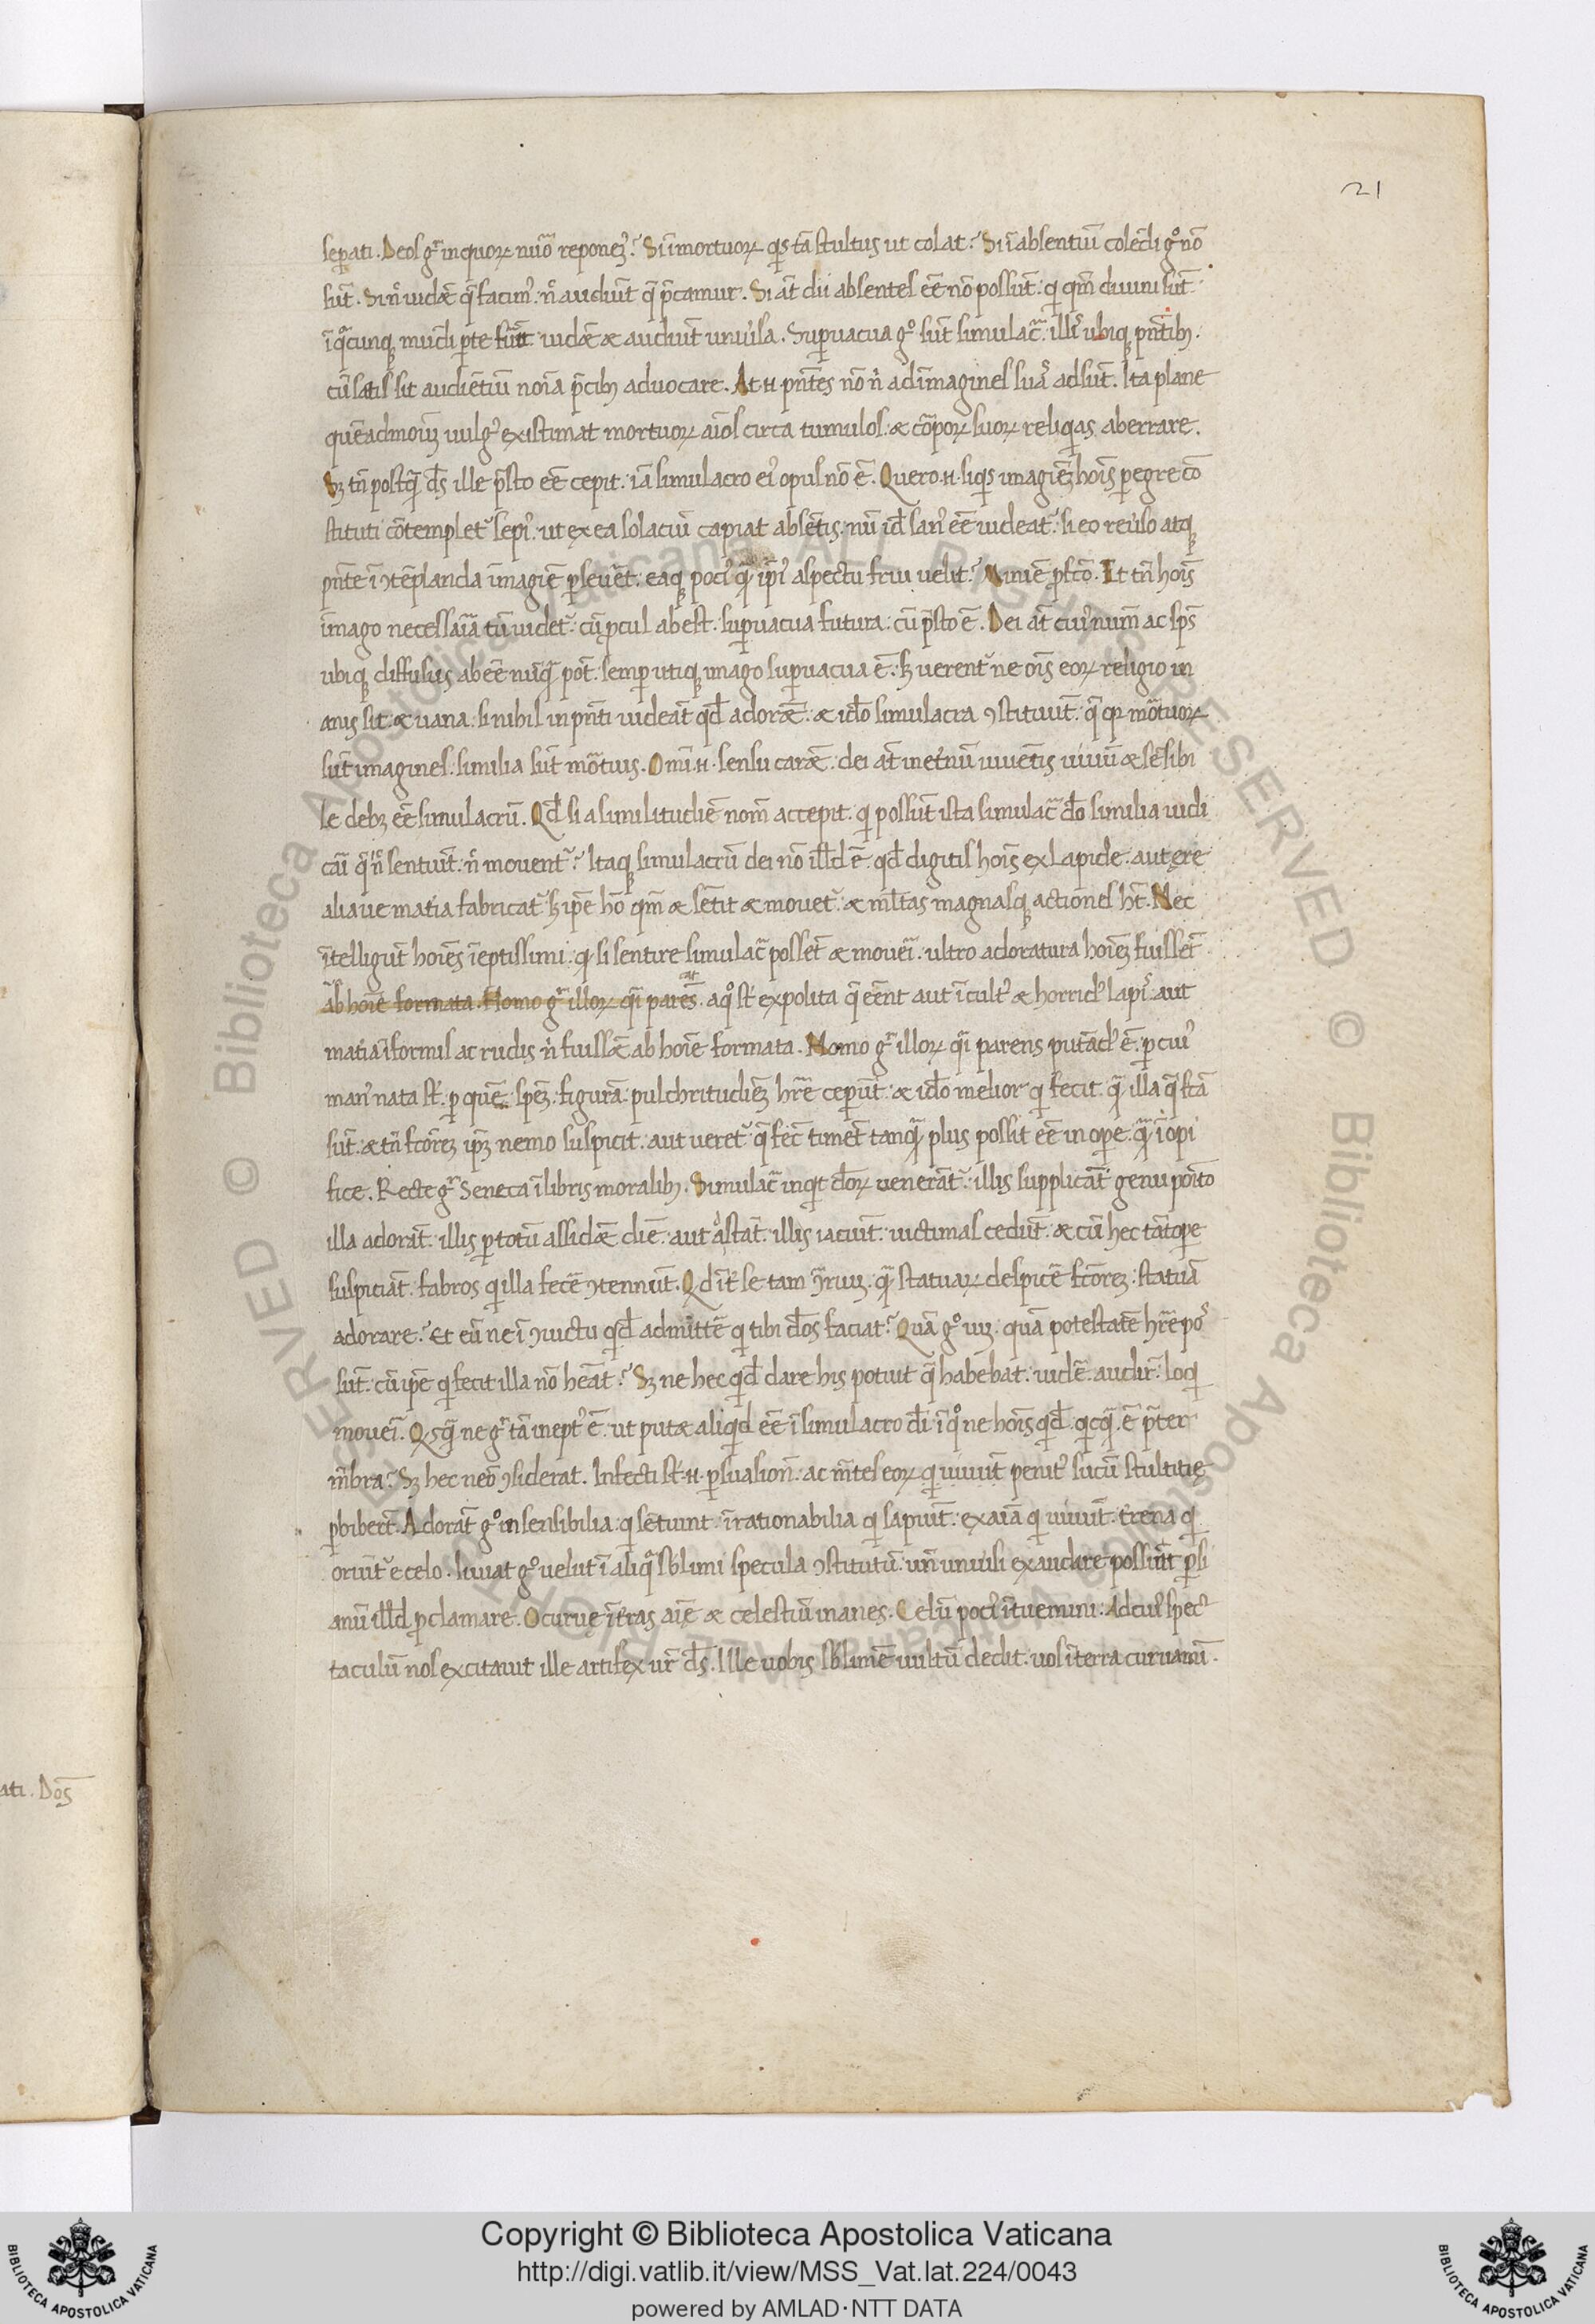 21
seꝑati. Deos gͬ in quoꝝ nūo reponeꝫ? Si ī mortuoꝝ qͥs tā stultus ut colat? Si ī absentiū colēdi gͦ nō
sūt. Si nͨ uidēt q̄ facimꝰ. nͨ audiūt q̄ p̄camur. Si aūt dii absentes eē nō possūt. qͥ qm̄ diuini sūt.
ī qͣcunqꝫ mūdi ꝑte fūit. uidēt & audiūt uniuͥsa. Suꝑuacua gͦ sūt simulacͣ. illiͥs ubiqꝫ pn̄tibꝫ.
cū satis sit audiētiū noīa p̄cibꝫ aduocare. At .n. pn̄tes nō nͥ ad īmagines suaͣs adsūt. Ita plane
quēadmoduꝫ uulgꝰ existimat mortuoꝝ aīas circa tumulos. & corꝑoꝝ suoꝝ reliqͥas aberrare.
Sꝫ tn̄ postqͣ d̄s ille p̄sto eē cepit. iā simulacro eiꝰ opus nō ē. Quero .n. si qͥs imagiēꝫ hoīs ꝑegre cō
stituti cōtempletͬ sepiꝰ. ut ex ea solaciū capiat absētis. nū id sanꝰ eē uideatͬ. si eo reuͥso atqꝫ
pn̄te ī ꝯtēplanda īmagiē ꝑseuēt. eaqꝫ pociꝰ qͣ ipīꝰ aspectu frui uelit? Minīe ꝓfcō. Et tn̄ hoīs
imago necessaīa tū uidetͬ. cū ꝓcul abest. suꝑuacua futura. cū p̄sto ē. Dei aūt cuiꝰ num̄ ac sp̄s
ubiqꝫ diffusus abeē nūqͣ pōt. semꝑ utiqꝫ imago suꝑuacua ē. sꝫ uerentͬ ne oīs eoꝝ religio in
anis sit. & uana. si nihil in pn̄ti uideāt qd̄ adorēt. & idō simulacra ꝯstituūt. q̄ qꝛ mōtuoꝝ
sūt imagines. similia sūt mōtuis. Om̄i .n. sensu carēt. dei aūt in etnū uiuētis uiuū & sēsibi
le debꝫ eē simulacrū. Qd̄ si a similitudiē nom̄ accepit. qͥ possūt ista simulacͣ dō similia iudi
cāi q̄ nͨ sentiūt. nͨ mouentͬ? Itaqꝫ simulacrū dei nō illd̄ ē. qd̄ digitis hoīs ex lapide. aut ęre
aliaue matīa fabricatͬ. sꝫ ipē hō qm̄ & sētit & mouetͬ. & ml̄tas magnasqꝫ actiones ht̄. Nec
ītelligūt hoīes īeptissimi. qꝛ si sentire simulacͣ possēt & mouēi. ultro adoratura hoīeꝫ fuissēt
ab hoīe formata. Homo gͬ illoꝝ qͣi parēs. a qͦ sͭ expolita q̄ eēnt aut īcultꝰ & horridꝰ lapiͥs. aut
matīa īformis ac rudis nͥ fuissēt ab hoīe formata. Homo gͬ illoꝝ qͣi parens putādꝰ ē. ꝑ cuiꝰ
manꝰ nata sͭ. ꝑ quē spēꝫ. figurā. pulchritudiēꝫ hr̄e ceꝑūt. & idō melior qͥ fecit. qͣ illa q̄ fcā
sūt. & tn̄ fcōreꝫ ipꝫ nemo suspicit. aut ueretͬ. q̄ fec̄ timet̄ tanqͣ plus possit eē in oꝑe. qͣ ī opi
fice. Recte gͬ Seneca ī libris moralibꝫ. Simulacͣ inqͥt d̄oꝝ uenerātͬ. illis supplicāt genu poīto
illa adorāt. illis ꝑ totū assidēt diē. aut astāt. illis iaciūt. uictimas cedūt. & cū hec tātoꝑe
suspiciāt. fabros qͥ illa fecē ꝯtennūt. Qd īt se tam ꝯtͣriuꝫ. qͣ statuaꝝ despicē fcōreꝫ. statuā
adorare? Et eū ne ī ꝯuictu qͥd̄ admittē qͥ tibi d̄os faciat? Quā gͦ uiꝫ. quā potestatē hr̄e poſ
sūt. cū ipē qͥ fecit illa nō heāt? Sꝫ ne hec qͥd̄ dare his potuit q̄ habebat. uidē. audir̄. loqͥ
mouēi. Qͥsqͣ ne gͬ tā ineptꝰ ē. ut putet aliqͥd eē ī simulacro d̄i. ī qͦ ne hoīs qͥd̄ qͥcqͣ ē p̄ter
mēbra? Sꝫ hec nēo ꝯsiderat. Infecti sͭ .n. ꝑsuasioē. ac mētes eoꝝ qͥ uiuūt penitꝰ sucū stultitię
ꝑbiberūt. Adorāt gͦ insensibilia. qͥ sētiunt. īrationabilia qͥ sapiūt. exaīa qͥ uiuūt. trena qͥ
oriūtͬ e celo. Iuuat gͦ uelut ī aliqͣ sb̄limi specula ꝯstitutū. un̄ uniuͥsi exaudire possint ꝑsi
anū illd̄ ꝓclamare. O curuę ītras aīę & celestiū inanes. Celū pociꝰ ītuemini. Ad cuiꝰ spec
taculū nos excitauit ille artifex ur̄ d̄s. Ille uobis sb̄limē uultū dedit. uos ī terra curuamī.
ati. Dos
Copyright © Biblioteca Apostolica Vaticana
http://digi.vatlib.it/view/MSS_Vat.lat.224/0043
powered by AMLAD·NTT DATA